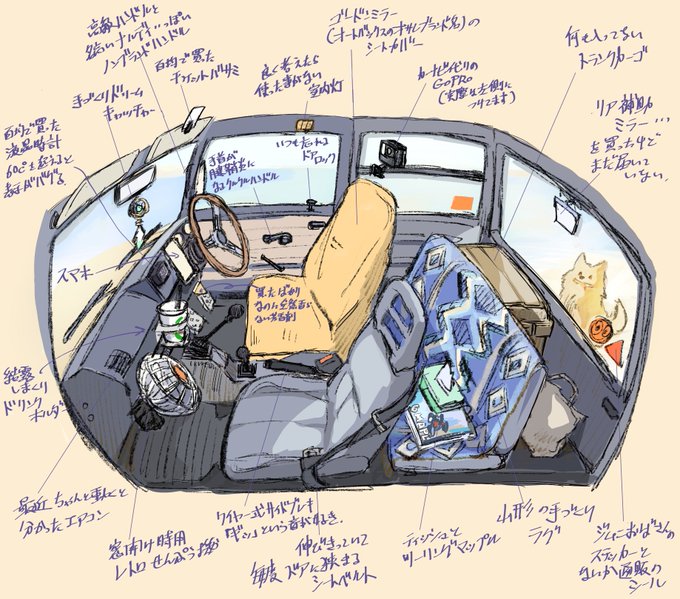 高級ハンドルと
名高いナルディ…っぽい
ノンブランドハンドル
百均で買った
チケットバサミ
手づくりドリーム
キャッチャー
百均で買った
液晶時計
60℃を超えると
表示がバグる
良く考えたら
使った事がない
室内灯
ゴードンミラー
(オートバックスのオサレブランド名)の
シートカバー
カーナビ代りの
GoPRO
(実際は左側に
つけてます)
何も入ってない
トランクカーゴ
リア補助
ミラー…
を買ったけど
まだ届いて
いない。
いつも忘れる
ドアロック
手首が
腱鞘炎に
なるクルクルハンドル
スマホ
買ったばかり
なのに全然吸わ
ない芳香剤
結露
しまくり
ドリンク
ホルダー
最近ちゃんと動くと
分かったエアコン
窓開け時用
レトロせんぷう機
ワイヤー式サイドブレーキ
「ギッ」という音がする。
伸びきっていて
毎度ドアに挟まる
シートベルト
ティッシュと
ツーリングマップル
山形の手づくり
ラグ
ジャニおばさんの
ステッカーと
ないか通販の
シール